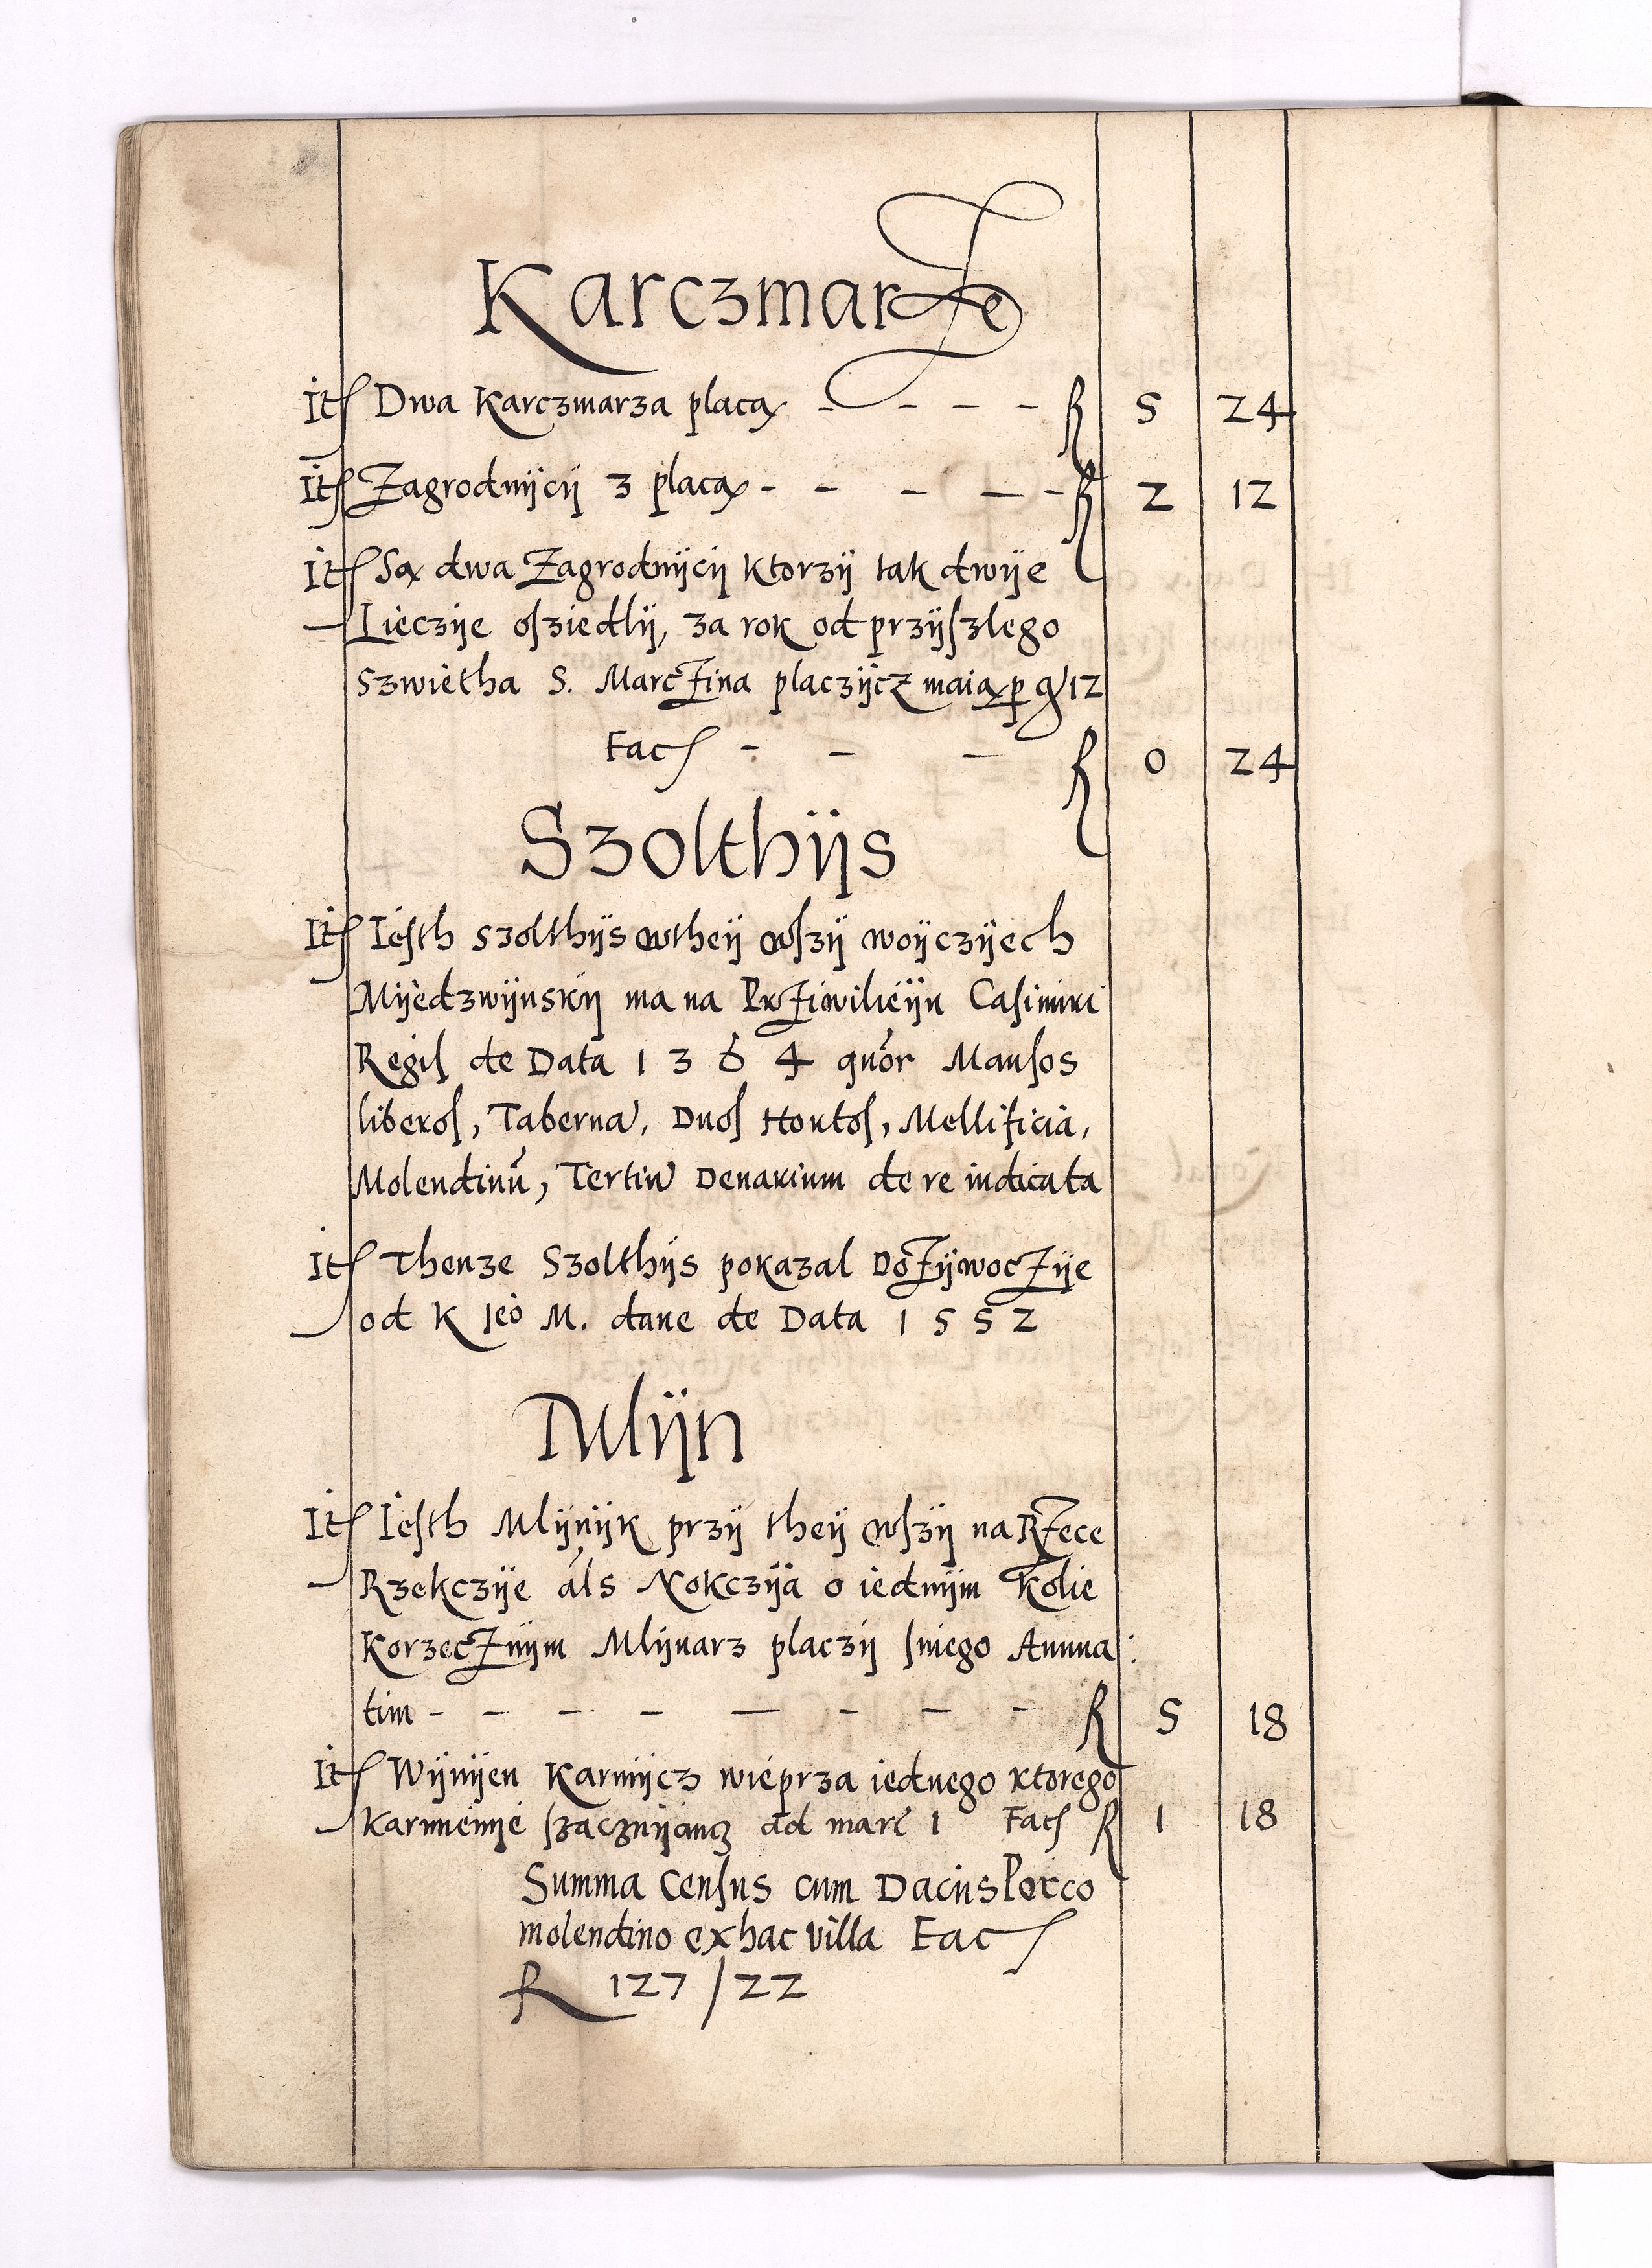 Karczmarże
Itē Dwa Karczmarza placą - - - - R 5 24
Itē Zagrodnijcij 3 placą - - - - - R 2 12
Itē Są dwa Zagrodnijcij ktorzij tak dwije
Lieczije osziedlij, za rok od przijszlego
Szwietha S. Marcżina placzijcz maią p g 12
Facˢ - - - R 0 24
Szolthijs
Itē Iesth szolthijs wtheij wszij woijczijech
Mijedzwijnskij ma na Prżiwilieijn Casimiri
Regis de Data 1364 quōr Mansos
liberos, Taberna, Duos Hortos, Mellificia,
Molendinū, Tertiū Denarium de re iudicata
Itē Thenze Szolthijs pokazal Dożijwocżije
od K Jeō M. dane de Data 1552
Mlijn
Itē Iesth Mlijnijk przij theij wszij na Rżece
Rzekczije als Nokczija o iednijm Kolie
Korzecżnijm Mlijnarz placzij sniego Annua:
tim - - - - - - - - R 5 18
Itē Wijnijen Karmijcz wieprza iednego ktorego
Karmienije szacznijang ad marc 1 Facˢ R 1 18
Summa Census cum Daciis Porco
molendino ex hac villa Facˢ
R 127/22